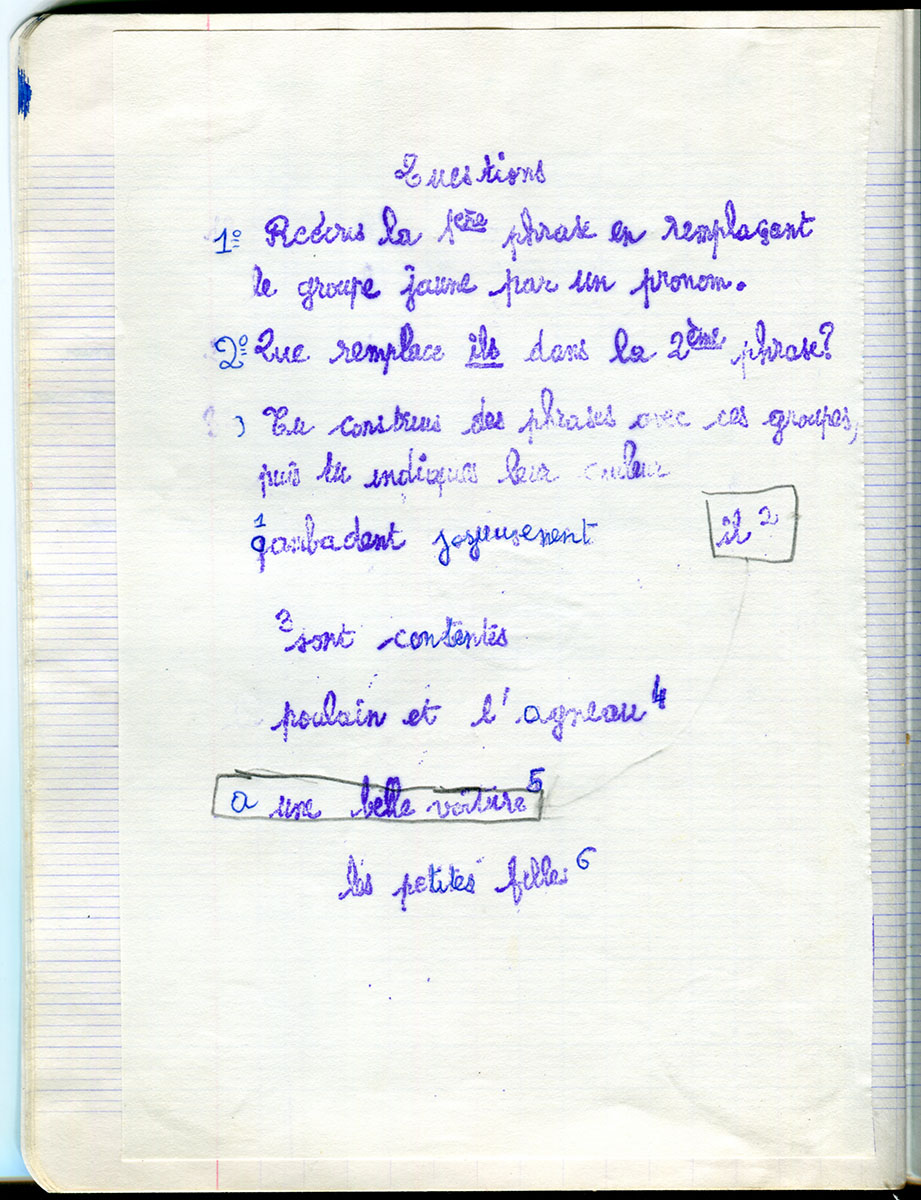 Questions
1° Réécris la 1ère phrase en remplaçant
le groupe jaune par un pronom.
2° Que remplace ils dans la 2ème phrase?
3) Tu construis des phrases avec ces groupes,
puis tu indiques leur couleur
1 gambadent joyeusement
il 2
3 sont contentes
poulain et l'agneau 4
a une belle voiture 5
les petites filles 6